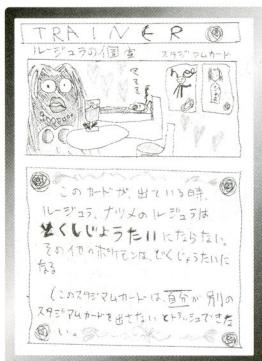 TRAINER
ルージュラの個室
スタジアムカード
このカードが、出ている時、
ルージュラ、ナツメのルージュラは
どくじょうたいにならない。
その他のポケモンは、どくじょうたいに
なる
(このスタジアムカードは、自分が別の
スタジアムカードを出さないとトラッシュできな
い。